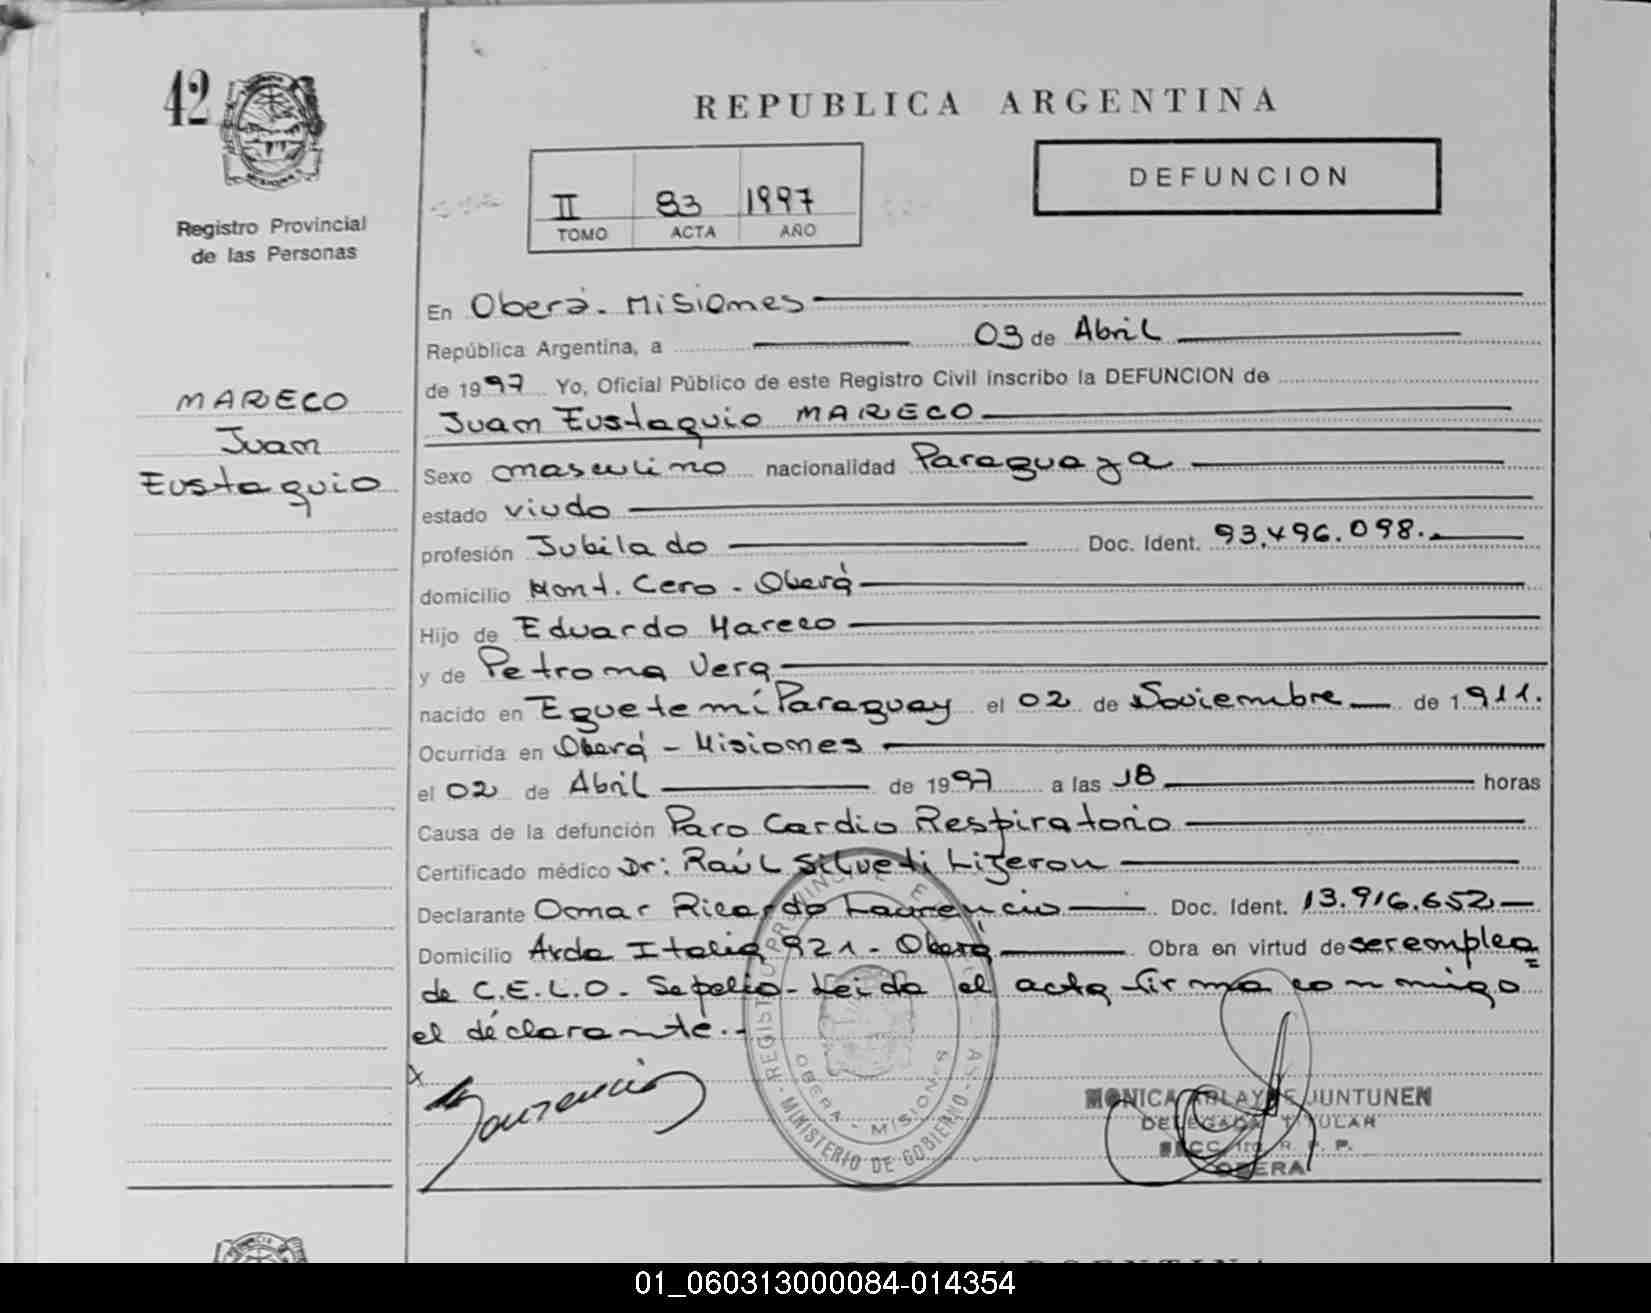 42
MISIONES
Registro Provincial
de las Personas
MARECO
Juan
Eustaquio
REPUBLICA ARGENTINA
II 83 1997
TOMO ACTA AÑO
DEFUNCION
En Oberá - Misiones
República Argentina, a 03 de Abril
de 1997 Yo, Oficial Público de este Registro Civil inscribo la DEFUNCION de
Juan Eustaquio MARECO
Sexo masculino nacionalidad Paraguaya
estado viudo
profesión Jubilado Doc. Ident. 93.496.098.
domicilio Mont. Cero - Oberá
Hijo de Eduardo Mareco
y de Petrona Vera
nacido en Eguetemí Paraguay el 02 de Noviembre de 1911.
Ocurrida en Oberá - Misiones
el 02 de Abril de 1997 a las 18 horas
Causa de la defunción Paro Cardio Respiratorio
Certificado médico Dr: Raúl Silveti Lizeron
Declarante Osmar Ricardo Laurencio Doc. Ident. 13.916.652
Domicilio Avda Italia 921 - Oberá Obra en virtud de ser emplea=
do C.E.L.O. Sepelio - Leida el acta firma conmigo
el declarante.-
x Laurencio
REGISTRO PROVINCIAL DE LAS PERSONAS
MINISTERIO DE GOBIERNO
OBERA - MISIONES
MONICA ARLAYNE JUNTUNEN
DELEGADA TITULAR
R. P. P.
OBERA
REPUBLICA ARGENTINA
01_060313000084-014354